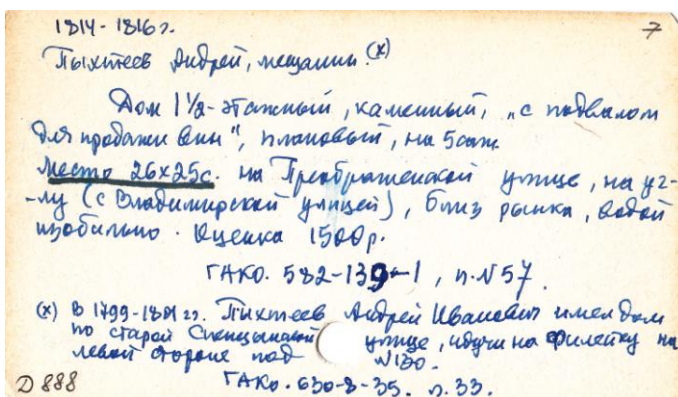 1814-1816г. 7
Пыхтеев Андрей, мещанин (х)
Дом 1 1/2-этажный, каменный, „с подвалом
для продажи вин", плановый, на 5 саж
Место 26х25с. на Преображенской улице, на уг-
-лу (с Владимирской улицей), близ рынка, водой
изобильно. Оценка 1500р.
ГАКО. 582-139-1, п.№57.
(х) В 1799-1801 гг. Пыхтеев Андрей Иванович имел дом
по старой улице, идучи на Филейку на
левой стороне под №130.
Д 888 ГАКО. 630-8-35. л.33.